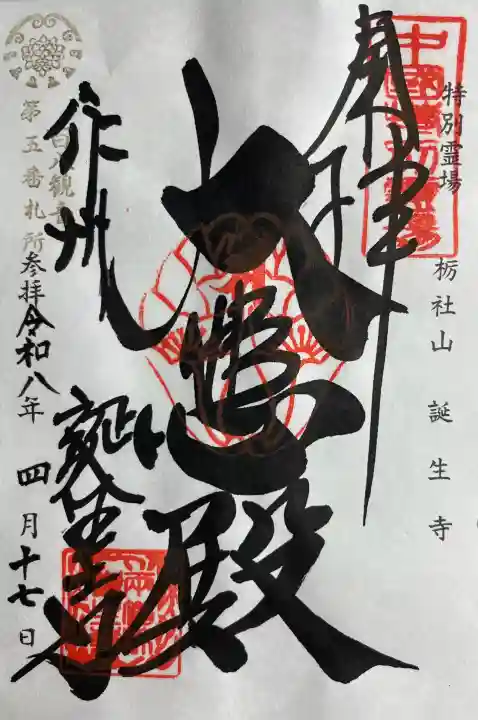 特別霊場
栃社山 誕生寺
奉拝
大悲殿
作州
誕生寺
百八観音
第五番札所
参拝令和八年 四月十七日